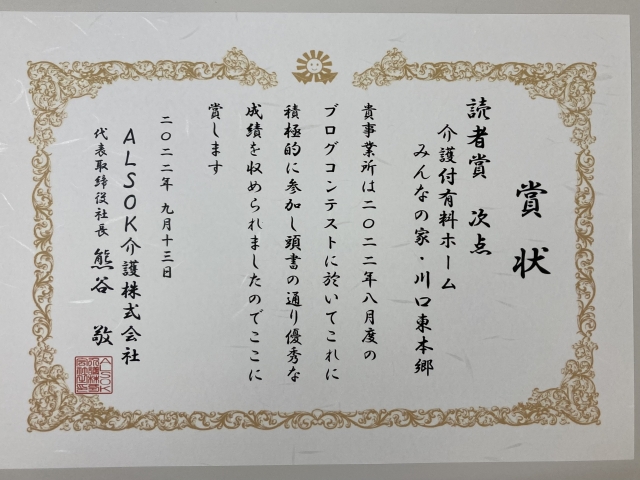 賞状
読者賞 次点
介護付有料ホーム
みんなの家・川口東本郷
貴事業所は二〇二二年八月度の
ブログコンテストに於いてこれに
積極的に参加し頭書の通り優秀な
成績を収められましたのでここに
賞します
二〇二二年 九月十三日
ALSOK介護株式会社
代表取締役社長 熊谷 敬